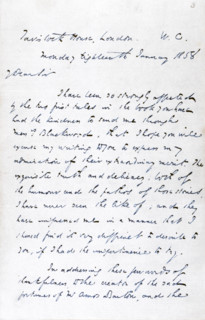 Tavistock House, London. W.C.
Monday Eighteenth January 1858
My Dear Sir
I have been so strongly affected
by the two first tales in the book you have
had the kindness to send me through
Messrs Blackwood, that I hope you will
excuse my writing to you to express my
admiration of their extraordinary merit. The
exquisite truth and delicacy, both of
the humour and the pathos of those stories,
I have never seen the like of; and they
have impressed me in a manner that I
should find it very difficult to describe to
you, if I had the impertinence to try.
In addressing these few words of
thankfulness to the creator of the sad
fortunes of Mr Amos Barton, and the